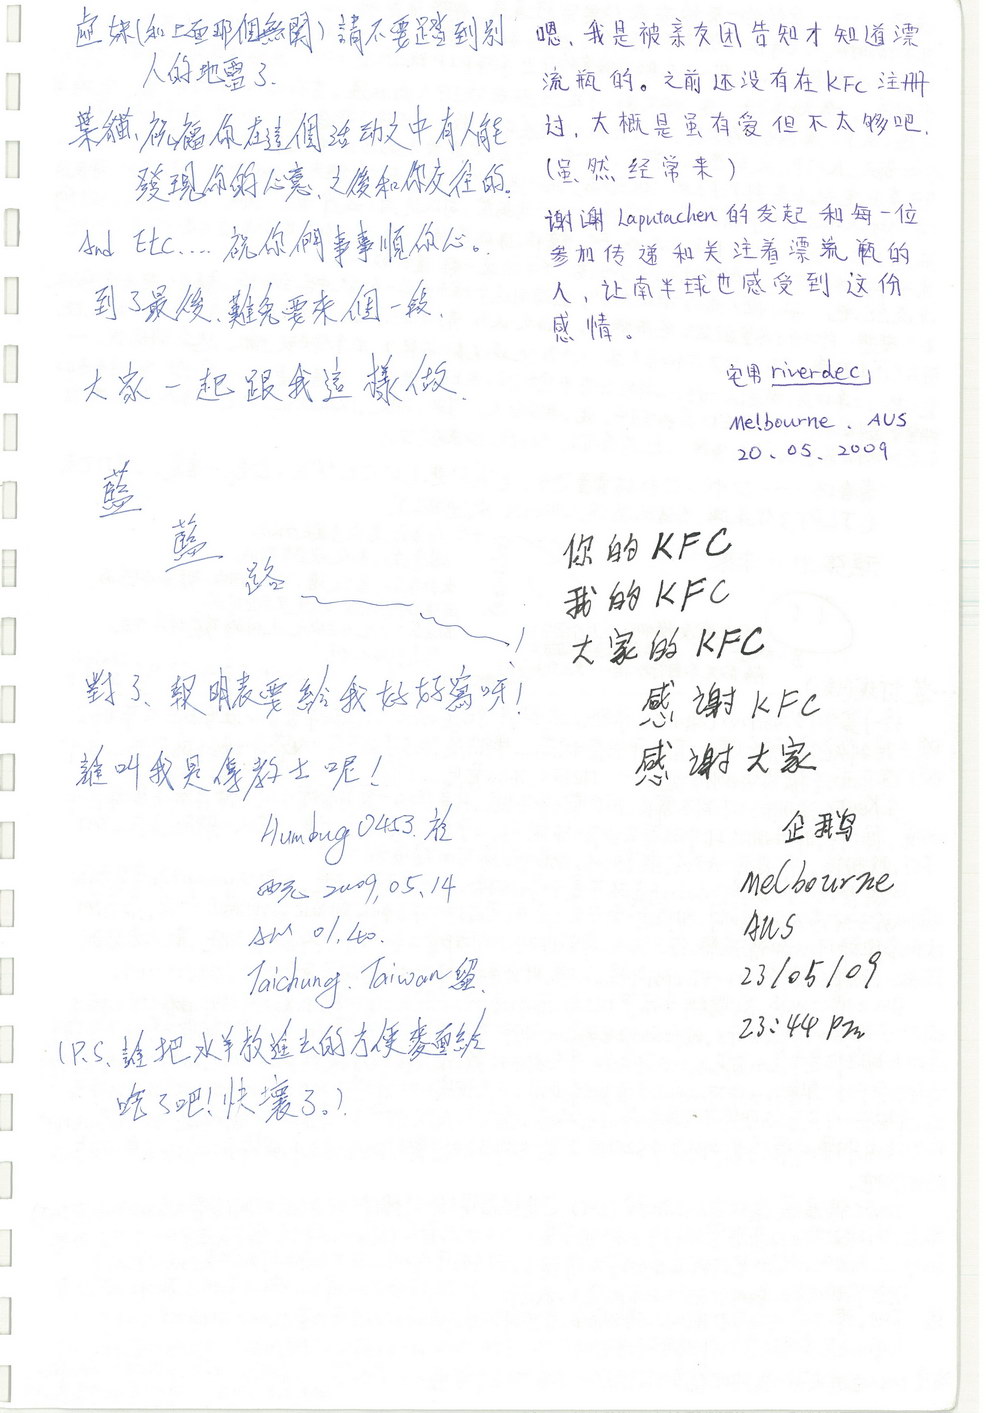 虛妹(和上面那個無關)請不要踏到別
人的地雷了.
葉貓、祝福你在這個活動之中有人能
發現你的心意、之後和你交往的。
And Etc.... 祝你們事事順你心。
到了最後、難免要來個一段.
大家一起跟我這樣做.
藍
藍
路
!
對了、報明表要給我好好寫呀!
誰叫我是傳教士呢!
Humbug0453.於
西元 2009,05,14
AM 01.40.
Taichung. Taiwan 留.
(P.S.誰把水羊放進去的方便麥麵給
吃了吧!快壞了。)
嗯,我是被亲友团告知才知道漂
流瓶的。之前还没有在KFC注册
过,大概是虽有爱但不太够吧.
(虽然经常来)
谢谢 Laputachen 的发起和每一位
参加传递和关注着漂流瓶的
人,让南半球也感受到这份
感情。
宅男 riverdec
Melbourne. AUS
20.05.2009
你的KFC
我的KFC
大家的KFC
感谢KFC
感谢大家
企鹅
Melbourne
AUS
23/05/09
23:44 Pm